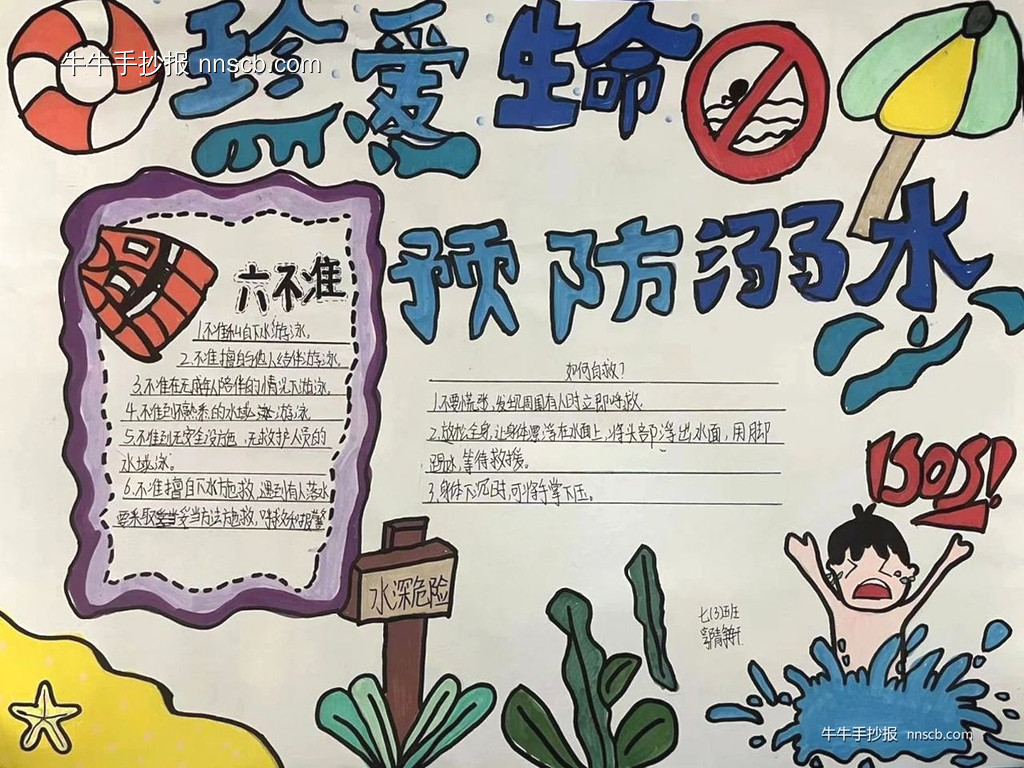 牛牛手抄报 nnscb.com
珍爱生命
预防溺水
六不准
1.不准私自下水游泳。
2.不准擅自与他人结伴游泳。
3.不准在无成年人陪伴的情况下游泳。
4.不准到不熟悉的水域游泳
5.不准到无安全设施、无救护人员的
水域泳。
6.不准擅自下水施救,遇到有人落水
要采取妥当方法施救,呼救和报警
如何自救?
1.不要慌张,发现周围有人时立即呼救.
2.放松全身,让身体漂浮在水面上,将头部浮出水面,用脚
踢水,等待救援。
3.身体下沉时,可将手掌下压。
SOS!
水深危险
七(3)班
牛牛手抄报 nnscb.com